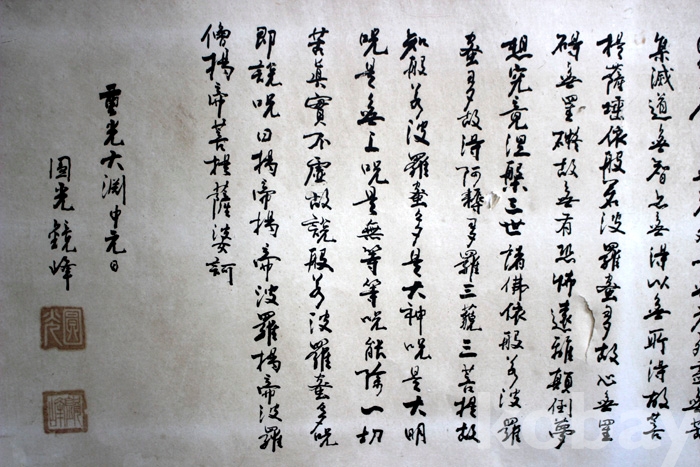 集滅道無智亦無得以無所得故菩
提薩埵依般若波羅蜜多故心無罣
碍無罣礙故無有恐怖遠離顛倒夢
想究竟涅槃三世諸佛依般若波羅
蜜多故得阿耨多羅三藐三菩提故
知般若波羅蜜多是大神呪是大明
呪是無上呪是無等等呪能除一切
苦眞實不虛故說般若波羅蜜多呪
即說呪曰揭帝揭帝波羅揭帝波羅
僧揭帝菩提薩婆訶
重光大淵中元日
圓光鏡峰
圓光
kobay